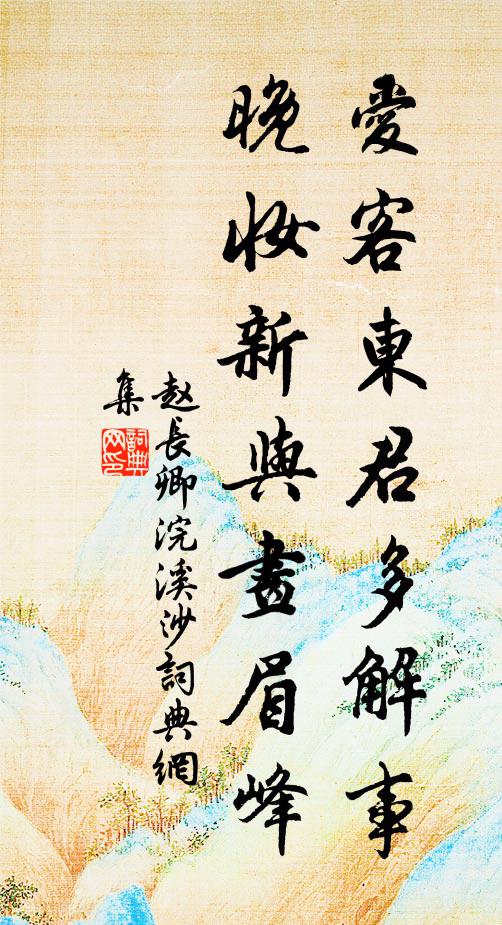 愛客東君多解事
晚妝新與畫眉峰
赵長卿浣溪沙詞典網
集
詞典
网印